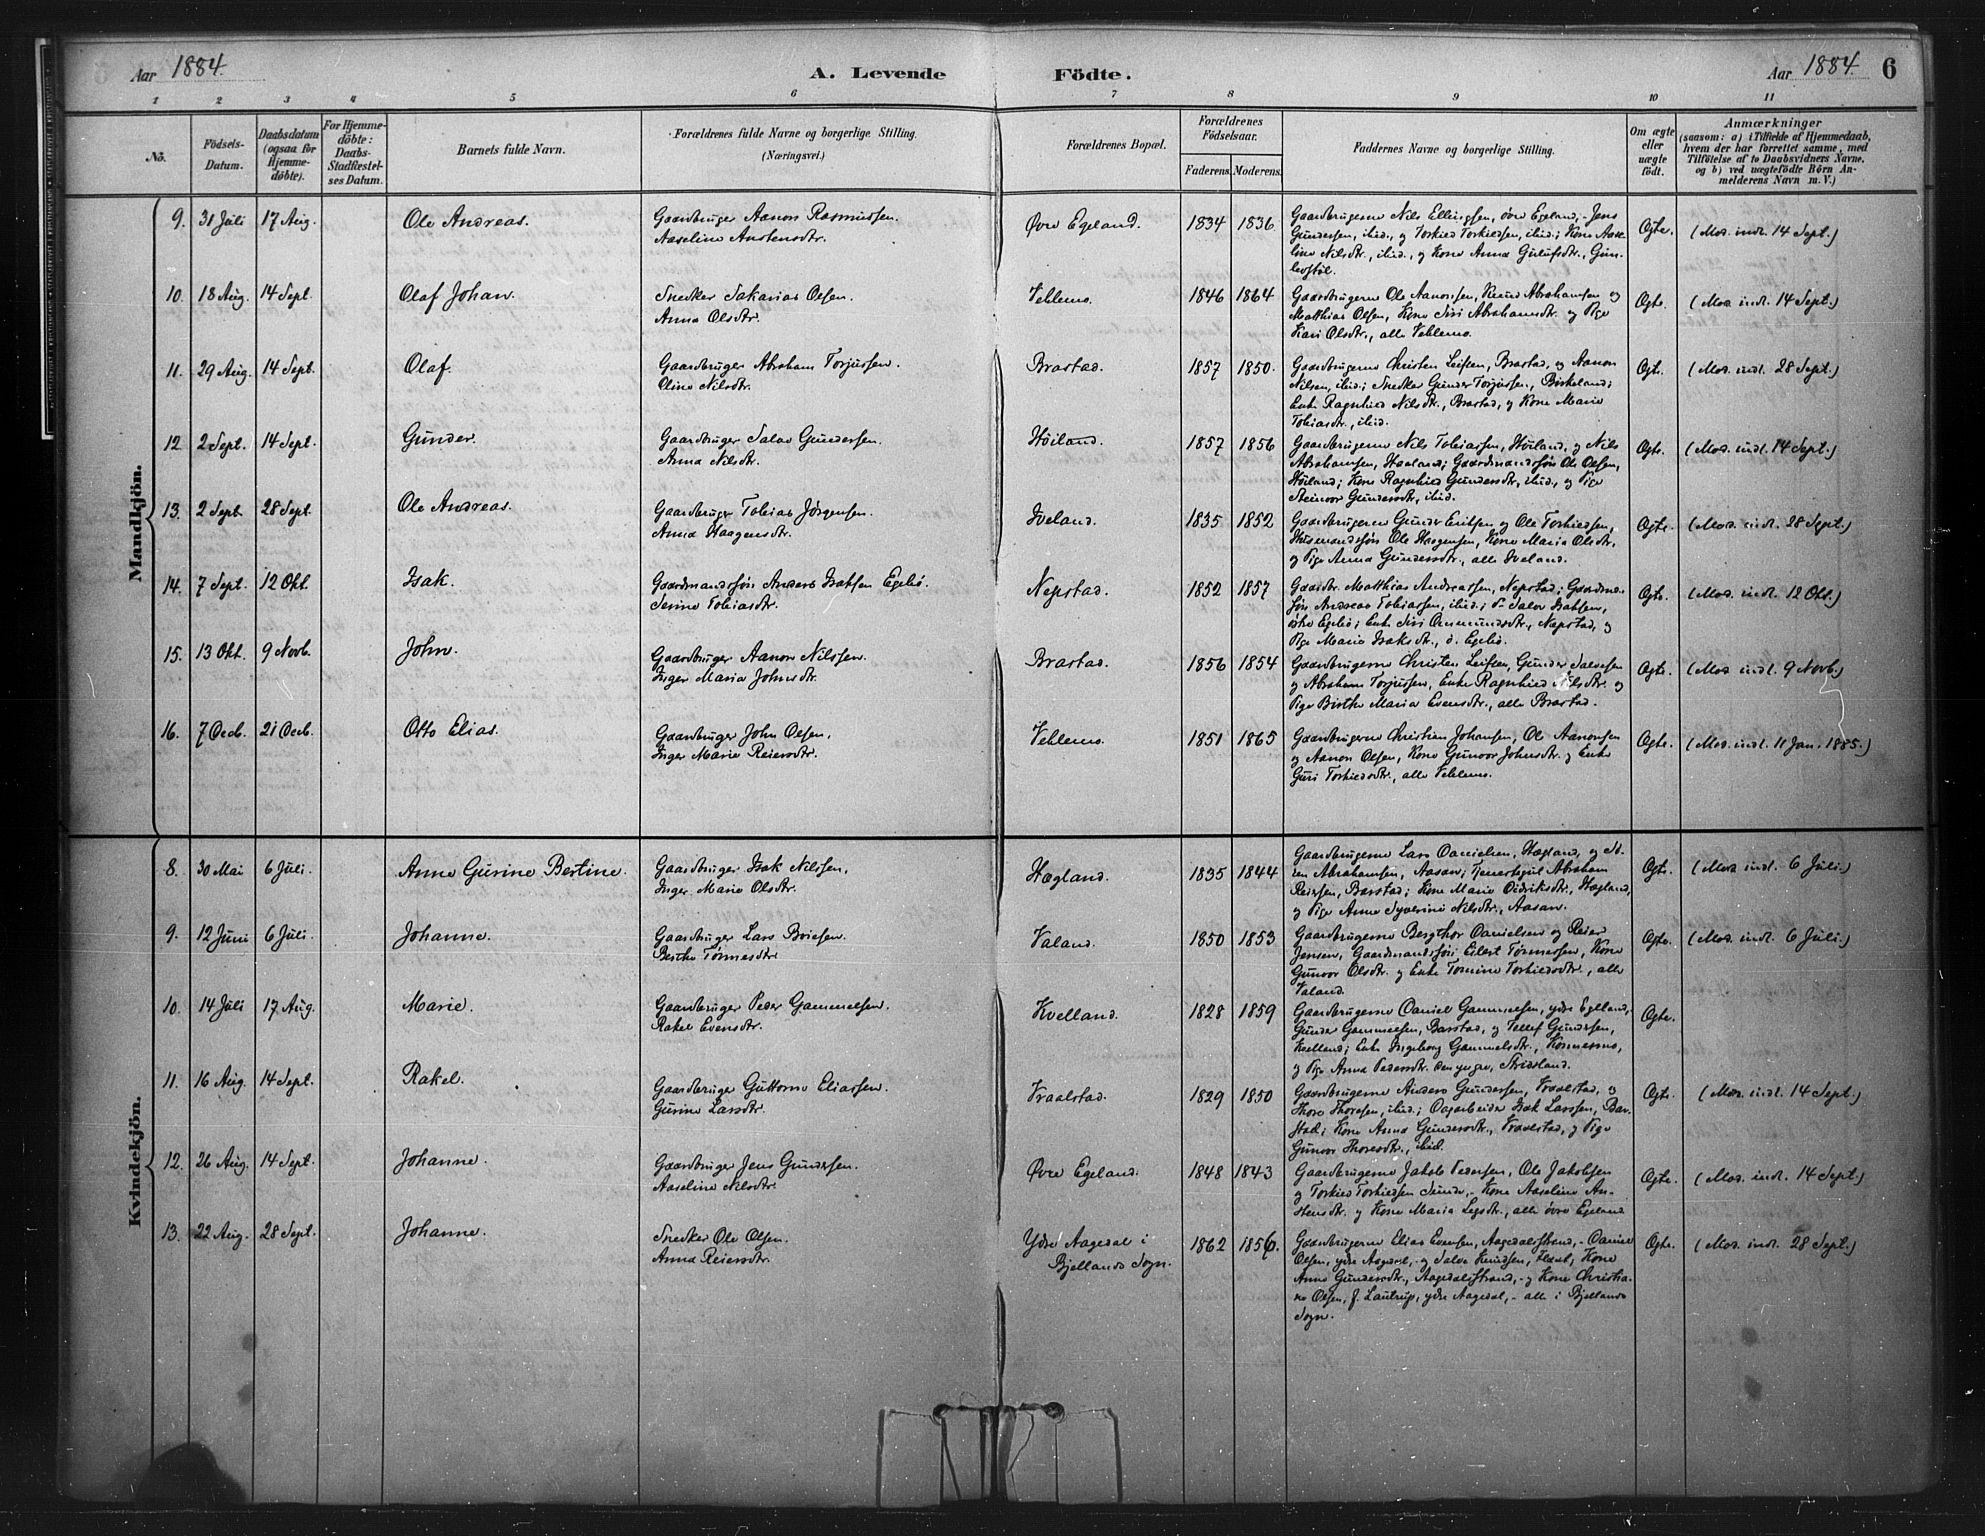 Aar 1884. A. Levende Fødte. Aar 1884. 6
1 2 3 4 5 6 7 8 9 10 11
No. Födsels-Datum. Daabsdatum (ogsaa for Hjemme-döbte). For Hjemme-döbte: Daabs-Stadfæstel-ses Datum. Barnets fulde Navn. Forældrenes fulde Navne og borgerlige Stilling. (Næringsvei.) Forældrenes Bopæl. Forældrenes Födselsaar. Faderens Moderens. Faddernes Navne og borgerlige Stilling. Om ægte eller uægte födt. Anmærkninger (saasom: a) i Tilfælde af Hjemmedaab, hvem der har forrettet samme, med Tilföielse af to Daabsvidners Navne, og b) ved uægtefödte Börn An-melderens Navn m. V.)
Mandkjön.
9. 31 Juli 17 Aug. Ole Andreas. Gaardbruger Aanon Rasmussen. Øvre Egeland. 1834 1836 Gaardbrugerne Nils Ellingsen, øvre Egeland, - Jens Ægte. (Mod. indl. 14 Sept.)
Aaseline Austensdtr. Gundersen, ibid., og Torkild Torkildsen, ibid.; Kone Aase-
line Nilsdtr., ibid., og Kone Anna Gulufsdtr., Gun-
levstøl.
10. 18 Aug. 14 Sept. Olaf Johan. Snedker Sakarias Olsen. Vehlemo. 1846 1864 Gaardbrugerne Ole Aanonsen, Knud Abrahamsen og Ægte. (Mod. indl. 14 Sept.)
Anna Olsdtr. Matthias Olsen, Kone Siri Abrahamsdtr. og Pige
Kari Olsdtr., alle Vehlemo.
11. 29 Aug. 14 Sept. Olaf. Gaardbruger Abraham Torjussen. Brastad. 1857 1850. Gaardbrugerne Christen Leifsen, Brastad, og Aanon Ægt. (Mod. indl. 28 Sept.)
Oline Nilsdtr. Nilsen, ibid.; Snedker Gunder Torjussen, Birkeland;
Enke Ragnhild Nilsdtr., Brastad, og Kone Marie
Tobiasdtr., ibid.
12. 2 Sept. 14 Sept. Gunder. Gaardbruger Salve Gundersen. Høiland. 1857 1856 Gaardbrugerne Nils Tobiassen, Høiland, og Nils Ægte. (Mod. indl. 14 Sept.)
Anna Nilsdtr. Abrahamsen, Haaland; Gaardmandssøn Ole Olsen,
Høiland; Kone Ragnhild Gundersdtr., ibid., og Pige
Steinvor Gundersdtr., ibid.
13. 2 Sept. 28 Sept. Ole Andreas. Gaardbruger Tobias Jørgensen. Iveland. 1835 1852 Gaardbrugerne Gunder Eriksen og Ole Torkildsen, Ægte. (Mod. indl. 28 Sept.)
Anna Haagensdtr. Husmandssøn Ole Haagensen, Kone Maria Olsdtr.,
og Pige Anna Gundersdtr., alle Iveland.
14. 7 Sept. 12 Okt. Isak. Gaardmandssøn Anders Isaksen Egelid. Nepstad. 1852 1857 Gaardbr. Matthias Andreassen, Nepstad; Gaardm.- Ægte. (Mod. indl. 12 Okt.)
Serine Tobiasdtr. søn Andreas Tobiassen, ibid.; Salve Isaksen,
Egelid; Enke Siri Ommundsdtr., Nepstad, og
Pige Maria Isaksdtr., Egelid.
15. 13 Okt. 9 Novb. John. Gaardbruger Aanon Nilssen. Brastad. 1856 1854 Gaardbrugerne Christen Leifsen, Gunder Salvesen Ægte. (Mod. indl. 9 Novb.)
Inger Maria Johnsdtr. og Abraham Torjussen, Enke Ragnhild Nilsdtr. og
Pige Birthe Maria Evensdtr., alle Brastad.
16. 7 Decb. 21 Decb. Otto Elias. Gaardbruger John Olsen, Vehlemo. 1851 1865 Gaardbrugerne Christian Johansen, Ole Aanonsen Ægte. (Mod. indl. 11 Jan. 1885.)
Inger Marie Reiersdtr. og Aanon Olsen, Kone Gunvor Johnsdtr. og Enke
Guri Torkildsdtr., alle Vehlemo.
Kvindekjön.
8. 30 Mai 6 Juli. Anne Gurine Bertine. Gaardbruger Isak Nilssen, Hægland. 1835 1844 Gaardbrugerne Lars Danielsen, Hægland, og St- Ægte. (Mod indl. 6 Juli.)
Inger Marie Olsdtr. en Abrahamsen, Aasan; Tjenestegut Abraham
Reiersen, Barstad; Kone Marie Didriksdtr., Hægland,
og Pige Anne Syverine Nilsdtr., Aasan.
9. 12 Juni 6 Juli. Johanne. Gaardbruger Lars Brielsen. Valand. 1850 1853 Gaardbrugerne Bergthor Danielsen og Reier Ægte. (Mod. indl. 6 Juli.)
Berthe Tønnesdtr. Jensen, Gaardmandssøn Eilert Tønnessen, Kone
Gunvor Olsdtr. og Enke Tomine Torkildsdtr., alle
Valand.
10. 14 Juli 17 Aug. Marie. Gaardbruger Peder Gammelsen. Kvelland. 1828 1859 Gaardbrugerne Daniel Gammelsen, ydre Egeland, Ægte.
Rakel Evensdtr. Gunder Gammelsen, Barstad, og Tellef Gundersen,
Kvelland; Enke Ingeborg Gammelsdtr., Konnesmo,
og Pige Anna Pedersdtr. den yngre, Strisland.
11. 16 Aug. 14 Sept. Rakel. Gaardbruger Guttorm Eliassen. Vraalstad. 1829 1850 Gaardbrugerne Anders Gundersen, Vraalstad, og Ægte. (Mod. indl. 14 Sept.)
Gurine Larsdtr. Thore Thoresen, ibid.; Dagarbeider Isak Larssen, Bar-
stad; Kone Anna Gundersdtr., Vraalstad, og Pige
Gunvor Thoresdtr., ibid.
12. 26 Aug. 14 Sept. Johanne. Gaardbruger Jens Gundersen. Øvre Egeland. 1848 1843 Gaardbrugerne Jakob Pedersen, Ole Jakobsen Ægte. (Mod. indl. 14 Sept.)
Aaseline Nilsdtr. og Torkild Torkildsen, Kone Aaseline Au-
stensdtr. og Kone Maria, alle øvre Egeland
13. 22 Aug. 28 Sept. Johanne. Snedker Ole Olsen. Ydre Aagedal i 1862 1856. Gaardbrugerne Elias Evensen, Aagedalsstrand, - Daniel Ægte. (Mod. indl. 28 Sept.)
Anna Reiersdtr. Bjellands Sogn. Olsen, ydre Aagedal, - og Salve Knudsen, Kone
Anne Gundersdtr., Aagedalsstrand, - og Kone Christia-
ne Olsen, f. Lautrup, ydre Aagedal, - alle i Bjellands
Sogn.